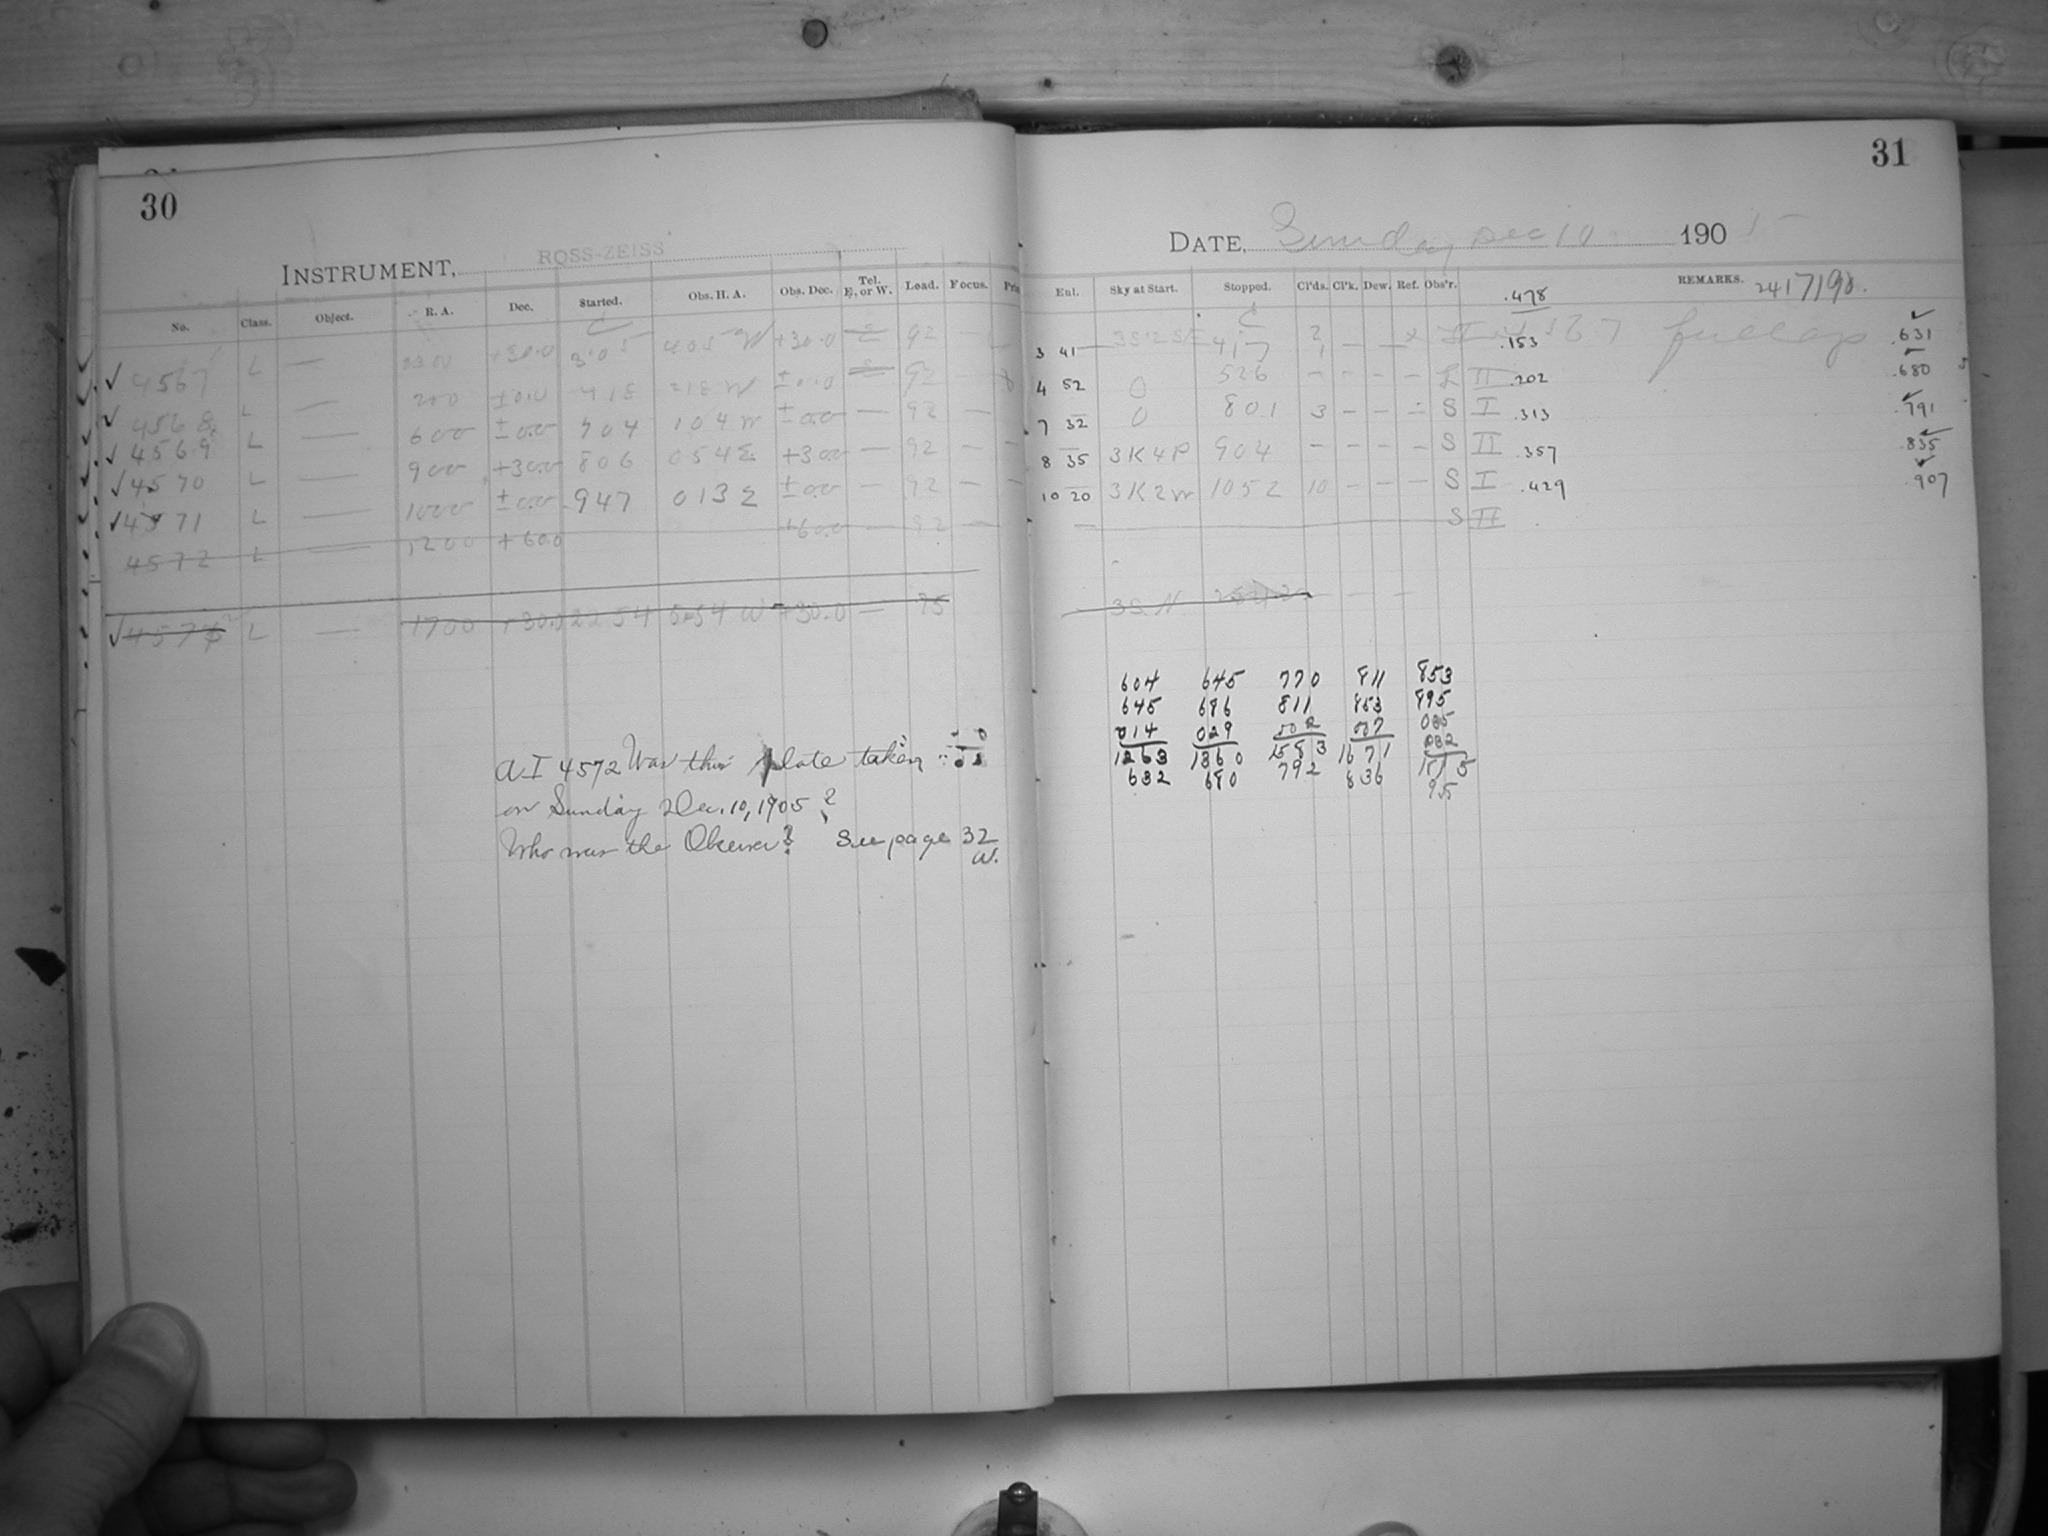 30
INSTRUMENT, ROSS-ZEISS
No. Class. Object. R. A. Dec. Started. Obs. H. A. Obs. Dec. Tel. E. or W. Load. Focus.
4567 L — +30.0 3 05 4 05 W +30.0 92 —
4568 L — 200 ±0.0 ±0.0 92 —
4569 L — 600 ±0.0 704 104 W ±0.0 — 92 —
4570 L — 900 +30.0 806 054 E +30.0 — 92 —
4571 L — 1000 ±0.0 947 013 E ±0.0 — 92 —
4572 L — 1200 +60.0 +60.0 — 92 —
L — 1700 +30.0 2254 5 54 W +30.0 — 95
A I 4572 Was this plate taken
on Sunday Dec. 10, 1905?
Who was the Observer? See page 32
W.
31
DATE, Sunday Dec 10 1905
Ent. Sky at Start. Stopped. Cl'ds. Cl'k. Dew. Ref. Obs'r. REMARKS. 2417190.
.478
3 41 417 .153 .631
4 52 0 526 — — — — II .202 .680
7 32 0 801 3 — — — S I .313 .791
8 35 3K4P 904 — — — — S II .357 .835
10 20 3K2W 1052 10 — — — S I .429 .907
— S II
3S.N
604 645 770 811 853
645 686 811 853 895
014 029 002 007 085
1263 1360 1583 1671
632 680 792 836